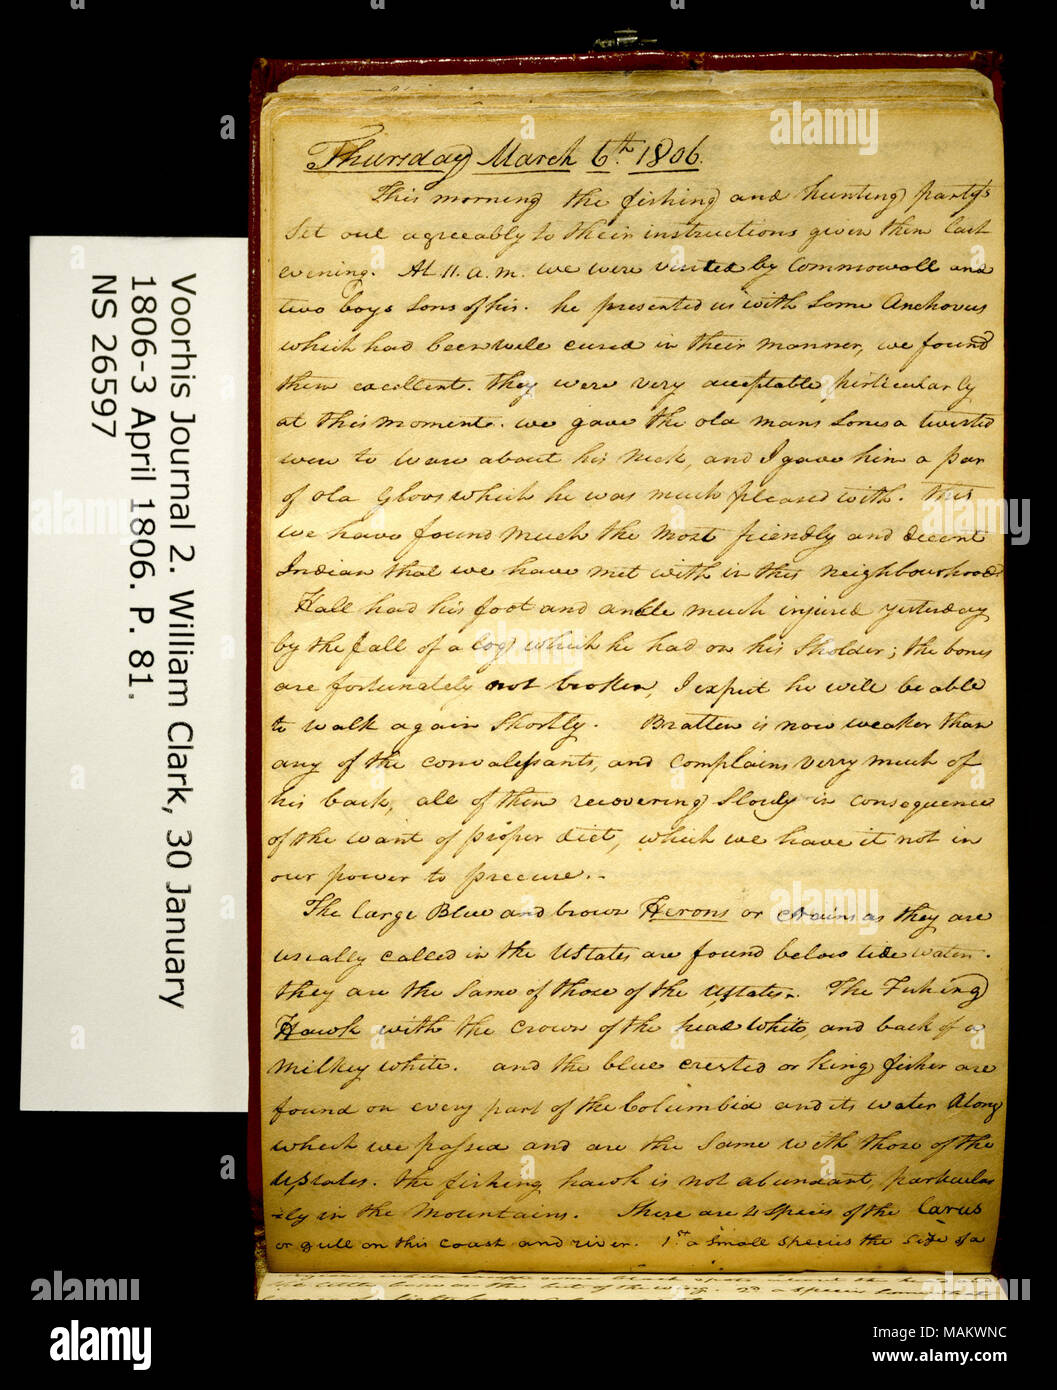 Thursday March 6th 1806.
This morning the fishing and hunting party's
Set out agreeably to their instructions given them last
evening. At 11. a. m. we were visited by Commowoll and
two boys Sons of his. he presented us with Some Anchovies
which had been well cured in their manner, we found
them excellent. they were very acceptable perticularly
at this moment. we gave the old mans Sones a twisted
wire to ware about his neck, and I gave him a par
of old Glovs which he was much pleased with. this
we have found much the most friendly and decent
Indian that we have met with in this neighbourhood.
Hall had his foot and ankle much injured yesterday
by the fall of a log which he had on his Sholder; the bones
are fortunately not broken, I expect he will be able
to walk again Shortly. Bratten is now weaker than
any of the convalessants, and complains verry much of
his back, all of them recovering Slowly in consequence
of the want of proper diet, which we have it not in
our power to precure.-
The large Blue and brown Herons or crains as they are
usially called in the U States are found below tide water.
they are the Same of those of the U States. The Fishing
Hawk with the crown of the head White, and back of a
milkey white. and the blue crested or King fisher are
found on every part of the Columbia and its water Along
which we passed and are the Same with those of the
U States. the fishing hawk is not abundant, particular
-ly in the Mountains. There are 4 Speces of the Larus
or gull on this coast and river. 1st a Small Species the Size of a
Voorhis Journal 2. William Clark, 30 January
1806-3 April 1806. P. 81.
NS 26597
alamy
Image ID: MAKWNC
www.alamy.com